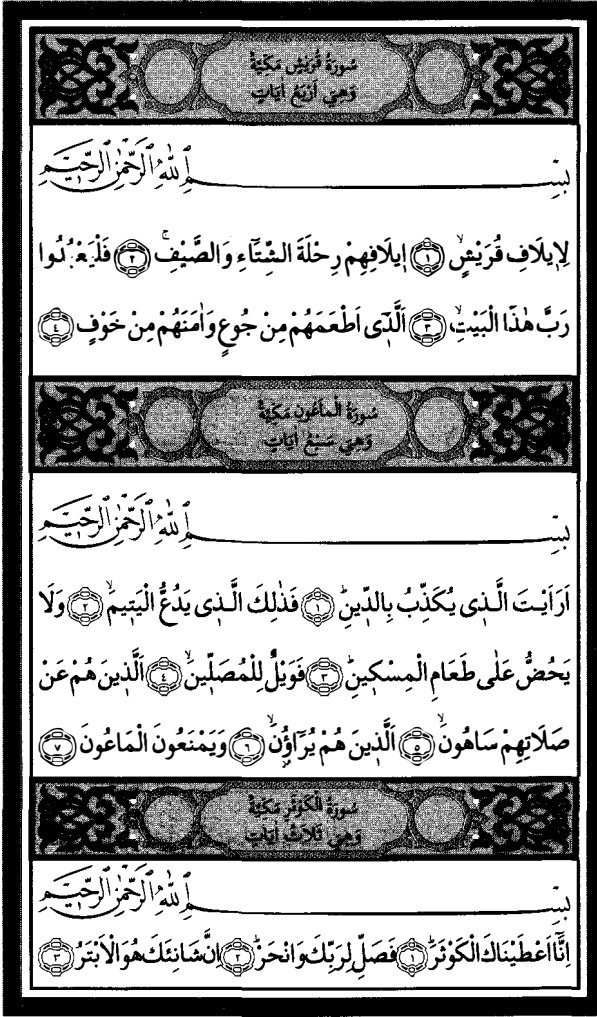 سُورَةُ قُرَيْشٍ مَكِّيَّةٌ
وَهِيَ أَرْبَعُ اٰيَاتٍ
بِسْــــــــمِ اللّٰهِ الرَّحْمٰنِ الرَّحٖيمِ
لِاٖيلَافِ قُرَيْشٍۙ ﴿١﴾ اٖيلَافِهِمْ رِحْلَةَ الشِّتَٓاءِ وَالصَّيْفِۚ ﴿٢﴾ فَلْيَعْبُدُوا
رَبَّ هٰذَا الْبَيْتِۙ ﴿٣﴾ اَلَّذٖٓى اَطْعَمَهُمْ مِنْ جُوعٍ وَاٰمَنَهُمْ مِنْ خَوْفٍ ﴿٤﴾
سُورَةُ الْمَاعُونِ مَكِّيَّةٌ
وَهِيَ سَبْعُ اٰيَاتٍ
بِسْــــــــمِ اللّٰهِ الرَّحْمٰنِ الرَّحٖيمِ
اَرَاَيْتَ الَّذٖى يُكَذِّبُ بِالدّٖينِؕ ﴿١﴾ فَذٰلِكَ الَّذٖى يَدُعُّ الْيَتٖيمَۙ ﴿٢﴾ وَلَا
يَحُضُّ عَلٰى طَعَامِ الْمِسْكٖينِؕ ﴿٣﴾ فَوَيْلٌ لِلْمُصَلّٖينَۙ ﴿٤﴾ اَلَّذٖينَ هُمْ عَنْ
صَلَاتِهِمْ سَاهُونَۙ ﴿٥﴾ اَلَّذٖينَ هُمْ يُرَٓاؤُ۫نَۙ ﴿٦﴾ وَيَمْنَعُونَ الْمَاعُونَ ﴿٧﴾
سُورَةُ الْكَوْثَرِ مَكِّيَّةٌ
وَهِيَ ثَلَاثُ اٰيَاتٍ
بِسْــــــــمِ اللّٰهِ الرَّحْمٰنِ الرَّحٖيمِ
اِنَّٓا اَعْطَيْنَاكَ الْكَوْثَرَؕ ﴿١﴾ فَصَلِّ لِرَبِّكَ وَانْحَرْؕ ﴿٢﴾ اِنَّ شَانِئَكَ هُوَ الْاَبْتَرُ ﴿٣﴾